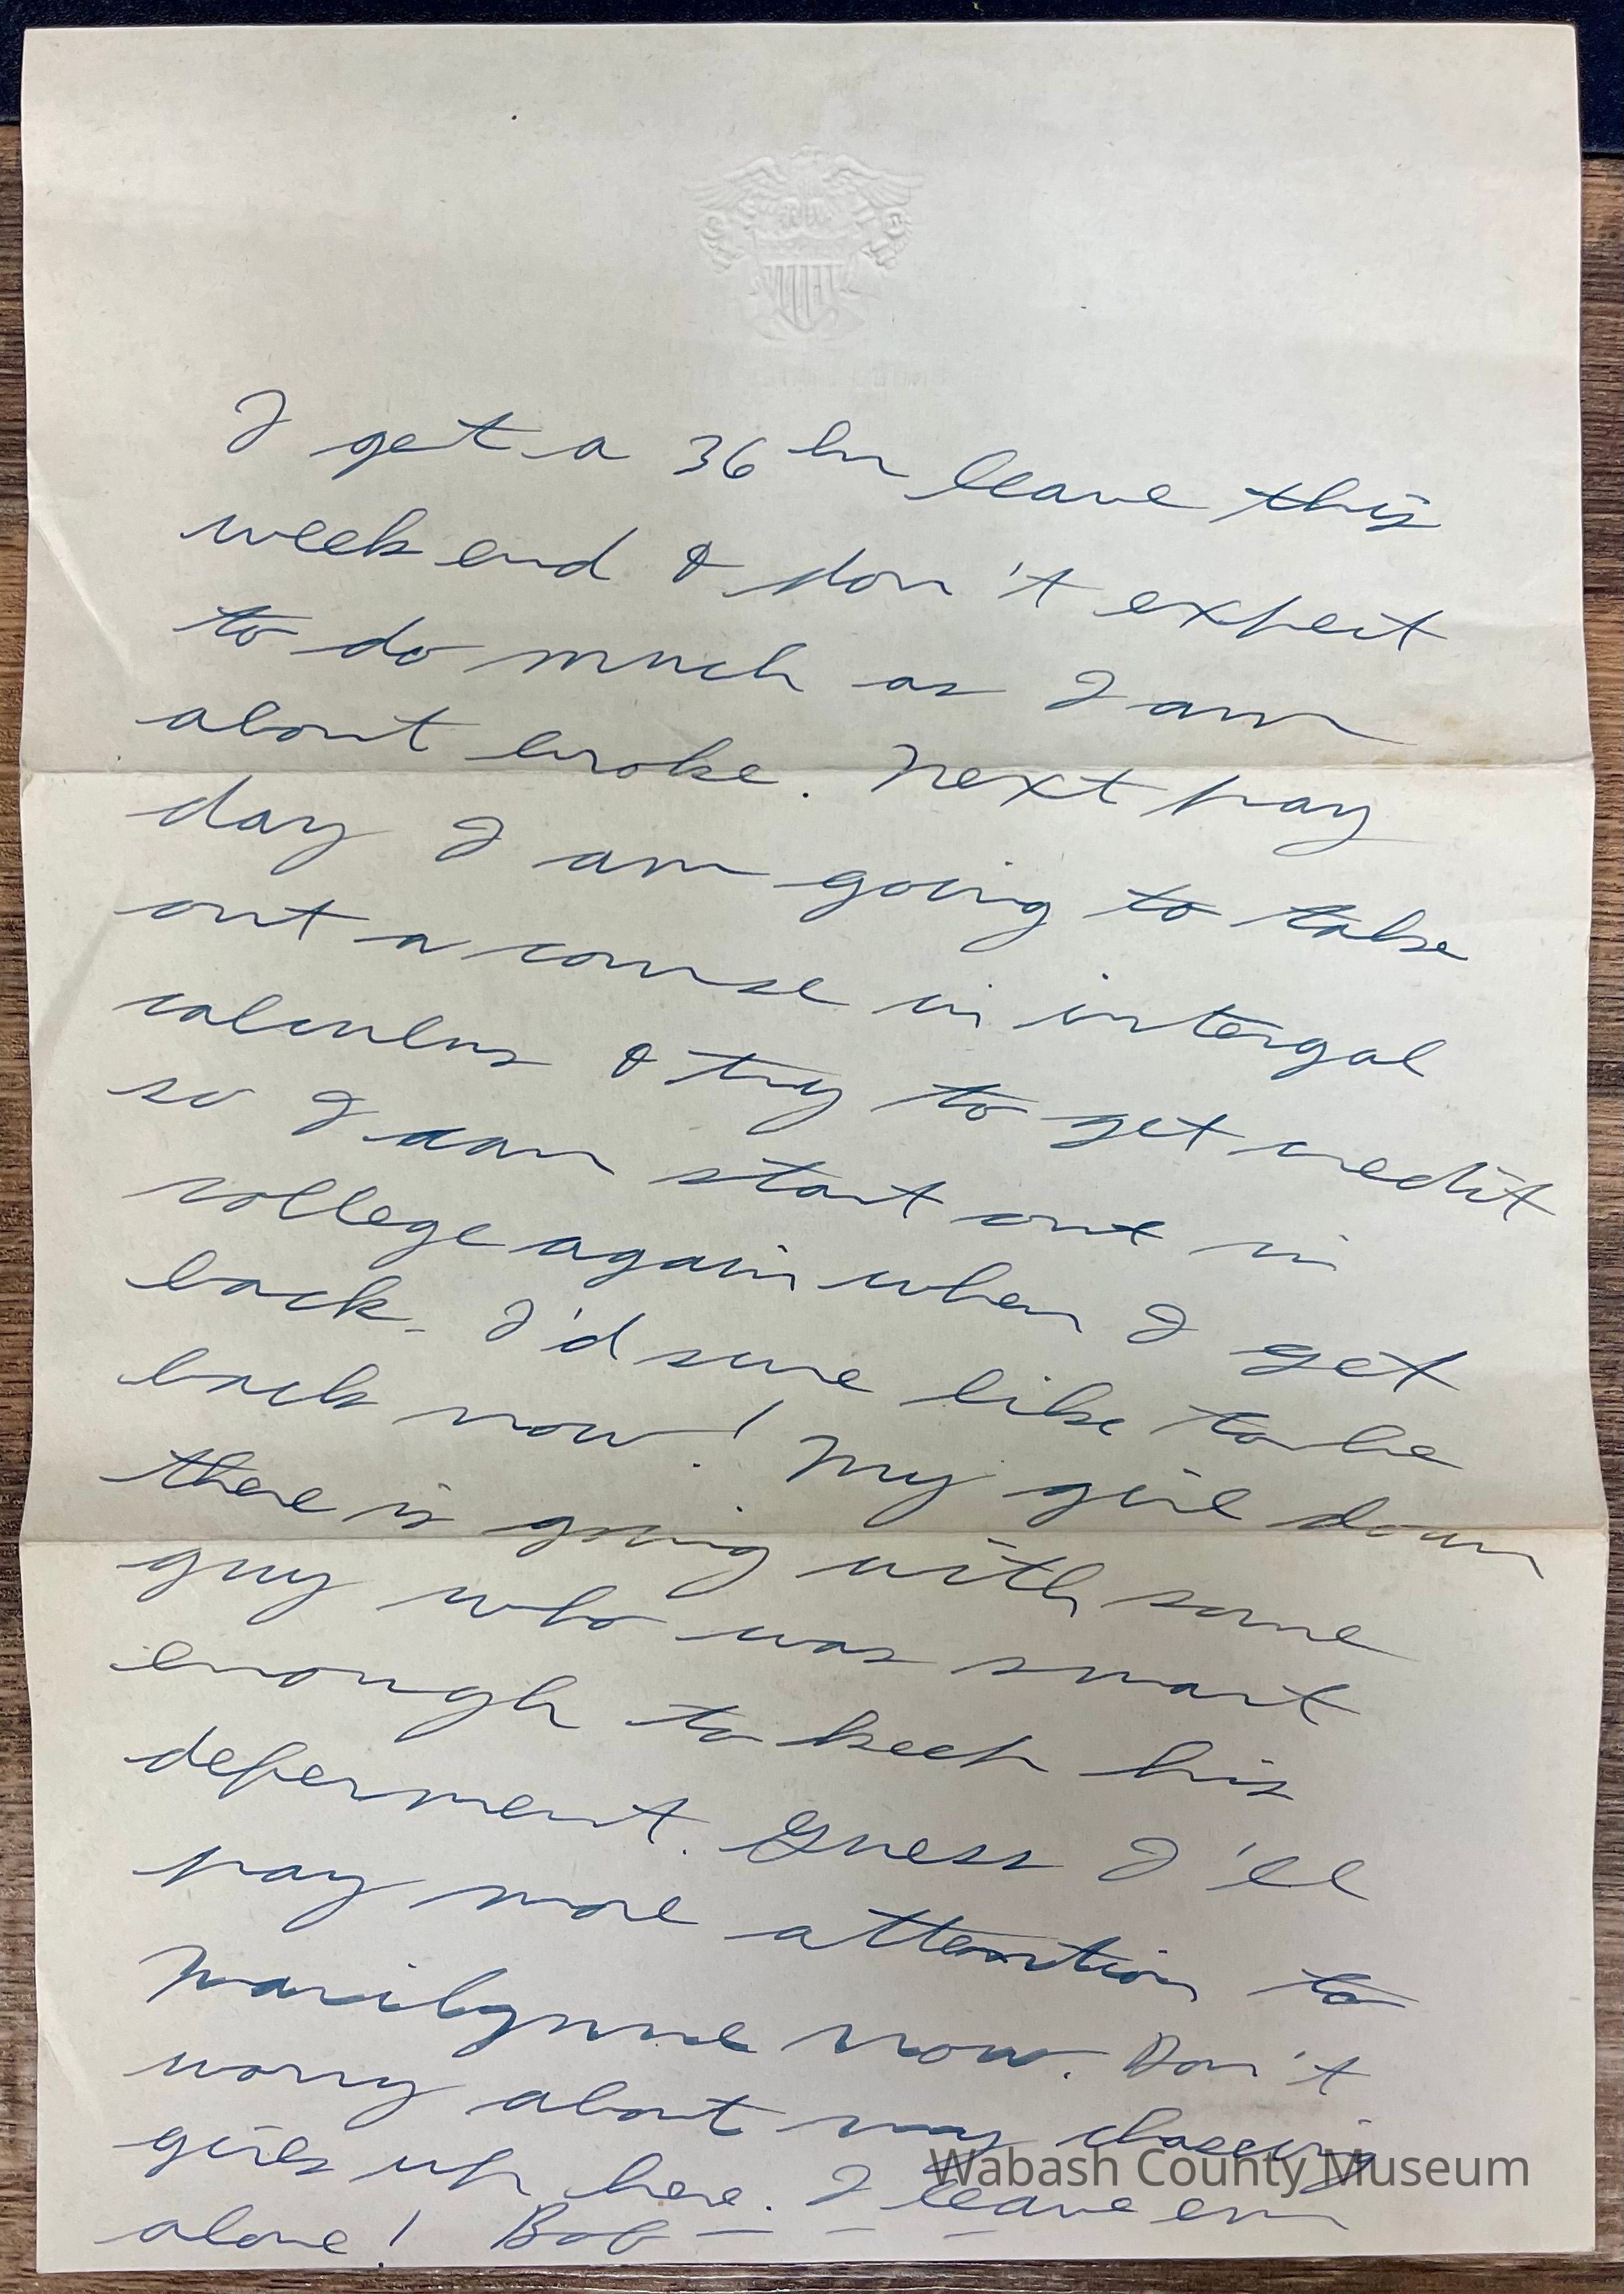 I get a 36 hr leave this
week end & don't expect
to do much as I am
about broke. Next pay
day I am going to take
out a course in intergal
calculus & try to get credit
so I can start out in
college again when I get
back. I'd sure like to be
back now! My girl down
there is going with some
guy who was smart
enough to keep his
deferment. Guess I'll
pay more attention to
Marilynne now. Don't
worry about my chasing
girls up here. I leave em
alone! Bob — — —
Wabash County Museum